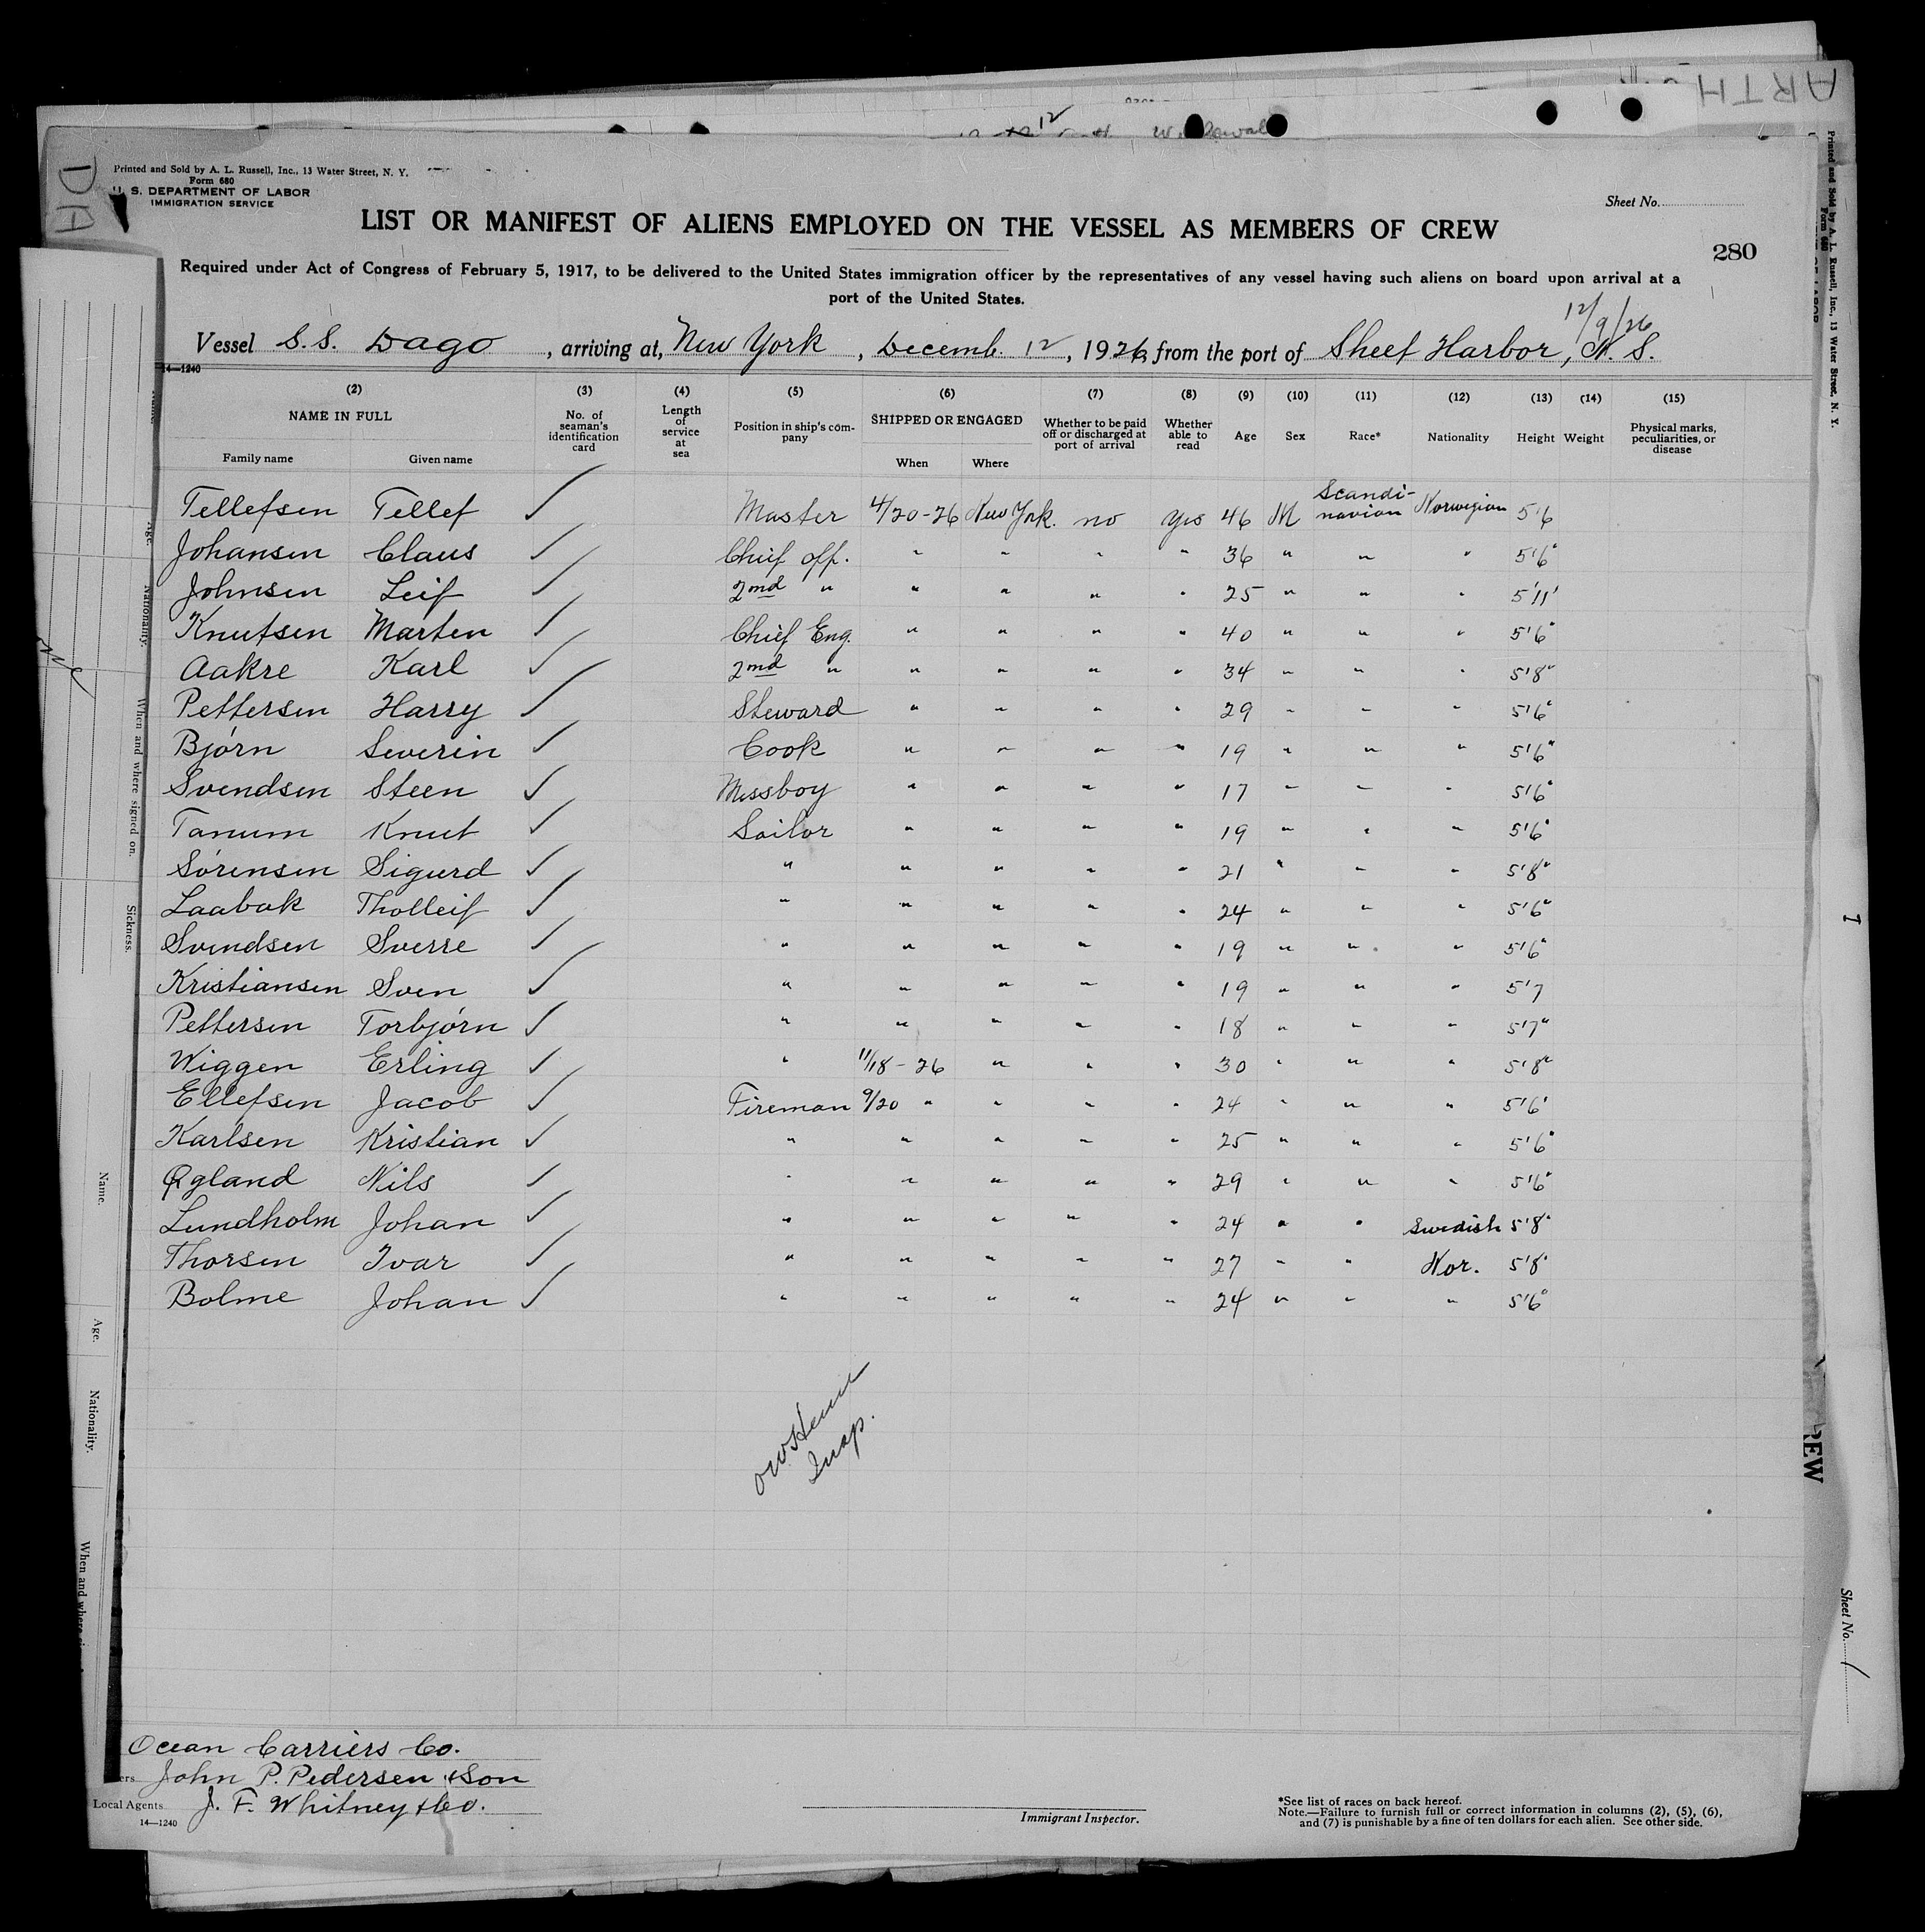 Printed and Sold by A. L. Russell, Inc., 13 Water Street, N. Y.
Form 680
U. S. DEPARTMENT OF LABOR
IMMIGRATION SERVICE
Sheet No.
LIST OR MANIFEST OF ALIENS EMPLOYED ON THE VESSEL AS MEMBERS OF CREW
280
Required under Act of Congress of February 5, 1917, to be delivered to the United States immigration officer by the representatives of any vessel having such aliens on board upon arrival at a
port of the United States.
12/9/26
Vessel S.S. Dago, arriving at, New York, Decemb. 12, 1926, from the port of Sheet Harbor, N. S.
14—1240
(2) (3) (4) (5) (6) (7) (8) (9) (10) (11) (12) (13) (14) (15)
NAME IN FULL No. of seaman's identification card Length of service at sea Position in ship's company SHIPPED OR ENGAGED Whether to be paid off or discharged at port of arrival Whether able to read Age Sex Race* Nationality Height Weight Physical marks, peculiarities, or disease
Family name Given name When Where
Tellefsen Tellef ✓ Master 4/20-26 New York. no yes 46 M Scandi-navian Norwegian 5'6
Johansen Claus ✓ Chief off. " " " " 36 " " " 5'6"
Johnsen Leif ✓ 2nd " " " " " 25 " " " 5'11'
Knutsen Marten ✓ Chief Eng. " " " " 40 " " " 5'6"
Aakre Karl ✓ 2nd " " " " " 34 " " " 5'8"
Pettersen Harry ✓ Steward " " " " 29 " " " 5'6"
Bjórn Severin ✓ Cook " " " " 19 " " " 5'6"
Svendsen Steen ✓ Messboy " " " " 17 " " " 5'6"
Tanum Knut ✓ Sailor " " " " 19 " " " 5'6"
Sórensen Sigurd ✓ " " " " " 21 " " " 5'8"
Laabak Tholleif ✓ " " " " " 24 " " " 5'6"
Svendsen Sverre ✓ " " " " " 19 " " " 5'6"
Kristiansen Sven ✓ " " " " " 19 " " " 5'7
Pettersen Torbjórn ✓ " " " " " 18 " " " 5'7"
Wiggen Erling ✓ " 11/18-26 " " " 30 " " " 5'8"
Ellefsen Jacob ✓ Fireman 9/20 " " " " 24 " " " 5'6'
Karlsen Kristian ✓ " " " " " 25 " " " 5'6"
Øgland Nils ✓ " " " " " 29 " " " 5'6"
Lundholm Johan ✓ " " " " " 24 " " Swedish 5'8"
Thorsen Ivar ✓ " " " " " 27 " " Nor. 5'8"
Bolme Johan ✓ " " " " " 24 " " " 5'6"
Insp.
Ocean Carriers Co.
John P. Pedersen & Son
Local Agents J. F. Whitney & Co.
14—1240
Immigrant Inspector.
*See list of races on back hereof.
Note.—Failure to furnish full or correct information in columns (2), (5), (6),
and (7) is punishable by a fine of ten dollars for each alien. See other side.
Age.
Nationality.
When and where signed on.
Sickness.
Name.
Age.
Nationality.
When and where
Printed and Sold by A. L. Russell, Inc., 13 Water Street, N. Y.
Form 680
REW
Sheet No. 1